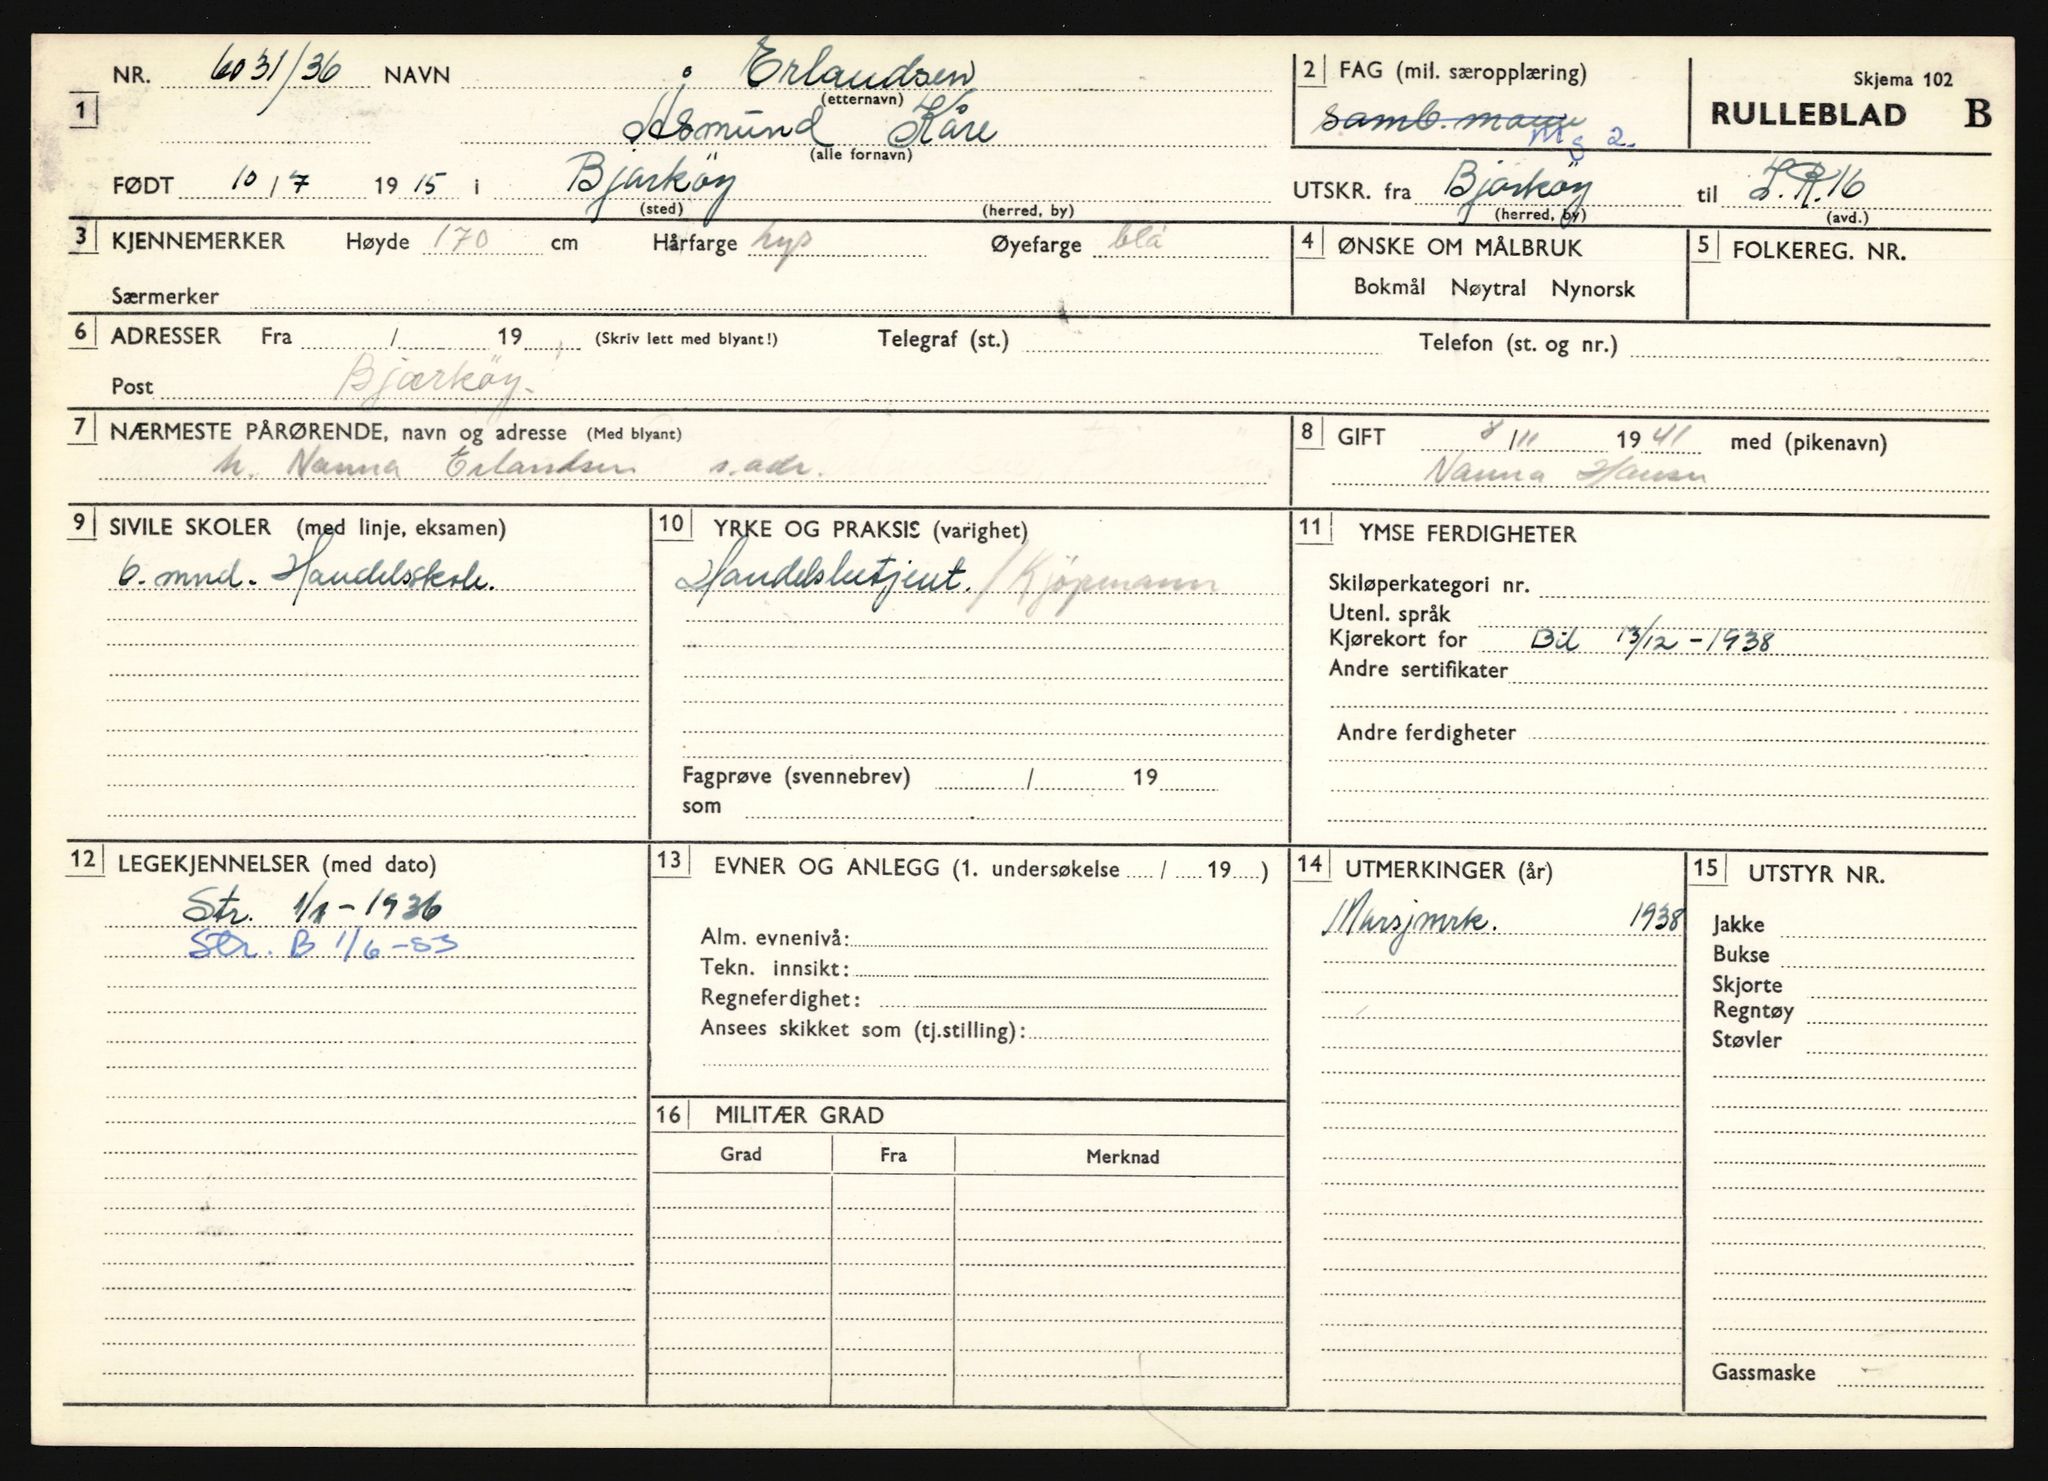 NR. 6031/36 NAVN Erlandsen
(etternavn)
1 Åsmund Kåre
(alle fornavn)
FØDT 10/7 1915 i Bjarköy
(sted) (herred, by)
2 FAG (mil. særopplæring)
Samb.mann
Mg 2.
Skjema 102
RULLEBLAD B
UTSKR. fra Bjarköy til I.R.16
(herred, by) (avd.)
3 KJENNEMERKER Høyde 170 cm Hårfarge lys Øyefarge blå
Særmerker
4 ØNSKE OM MÅLBRUK
Bokmål Nøytral Nynorsk
5 FOLKEREG. NR.
6 ADRESSER Fra / 19 (Skriv lett med blyant!) Telegraf (st.) Telefon (st. og nr.)
Post Bjarköy.
7 NÆRMESTE PÅRØRENDE, navn og adresse (Med blyant)
h. Nanna Erlandsen s.adr.
8 GIFT 8/11 1941 med (pikenavn)
Nanna Hansen
9 SIVILE SKOLER (med linje, eksamen)
6. mnd. Handelsskole.
10 YRKE OG PRAKSIS (varighet)
Handelsbetjent. / Kjöpmann
Fagprøve (svennebrev) / 19
som
11 YMSE FERDIGHETER
Skiløperkategori nr.
Utenl. språk
Kjørekort for Bil 13/12-1938
Andre sertifikater
Andre ferdigheter
12 LEGEKJENNELSER (med dato)
Str. 1/1-1936
Str. B 1/6-53
13 EVNER OG ANLEGG (1. undersøkelse / 19 )
Alm. evnenivå:
Tekn. innsikt:
Regneferdighet:
Ansees skikket som (tj.stilling):
14 UTMERKINGER (år)
Marsjmrk. 1938
15 UTSTYR NR.
Jakke
Bukse
Skjorte
Regntøy
Støvler
Gassmaske
16 MILITÆR GRAD
Grad Fra Merknad